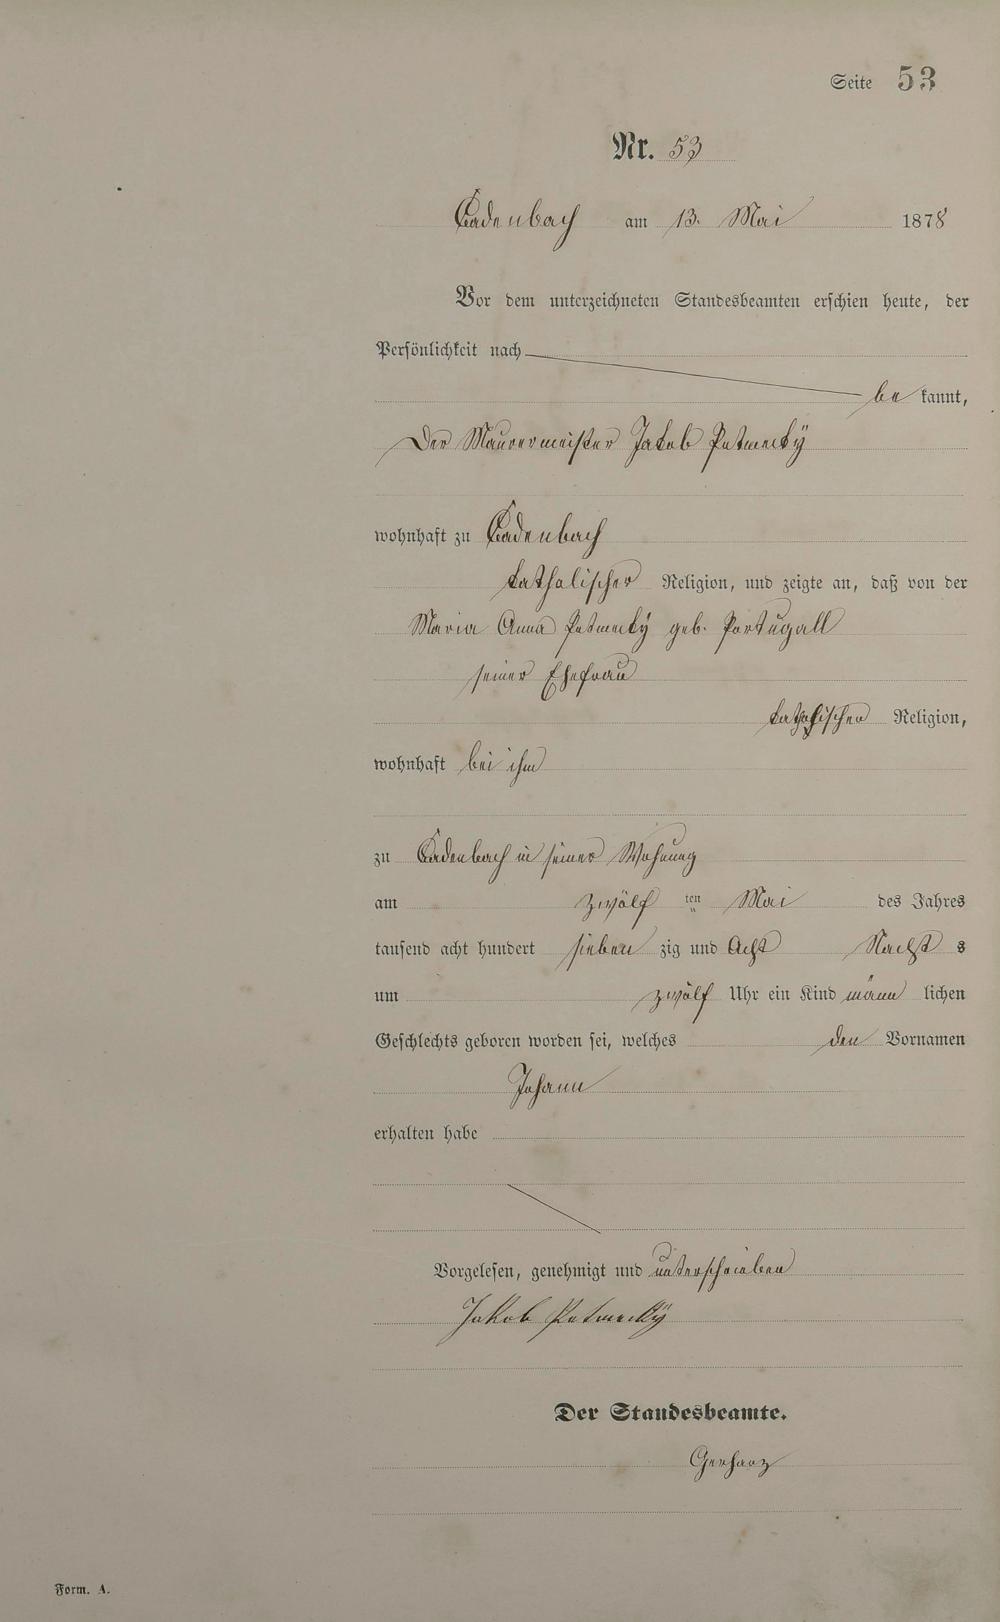 Seite 53
Nr. 53
Cadenbach am 13. Mai 1878
Vor dem unterzeichneten Standesbeamten erschien heute, der
Persönlichkeit nach
be kannt,
Der Maurermeister Jakob Petmecky
wohnhaft zu Cadenbach
katholischer Religion, und zeigte an, daß von der
Maria Anna Petmecky geb. Portugall
seiner Ehefrau
katholischer Religion,
wohnhaft bei ihm
zu Cadenbach in seiner Wohnung
am zwölf ten Mai des Jahres
tausend acht hundert sieben zig und Acht Nacht s
um zwölf Uhr ein Kind männ lichen
Geschlechts geboren worden sei, welches den Vornamen
Johann
erhalten habe
Vorgelesen, genehmigt und unterschrieben
Jakob Petmecky
Der Standesbeamte.
Gerharz
Form. A.